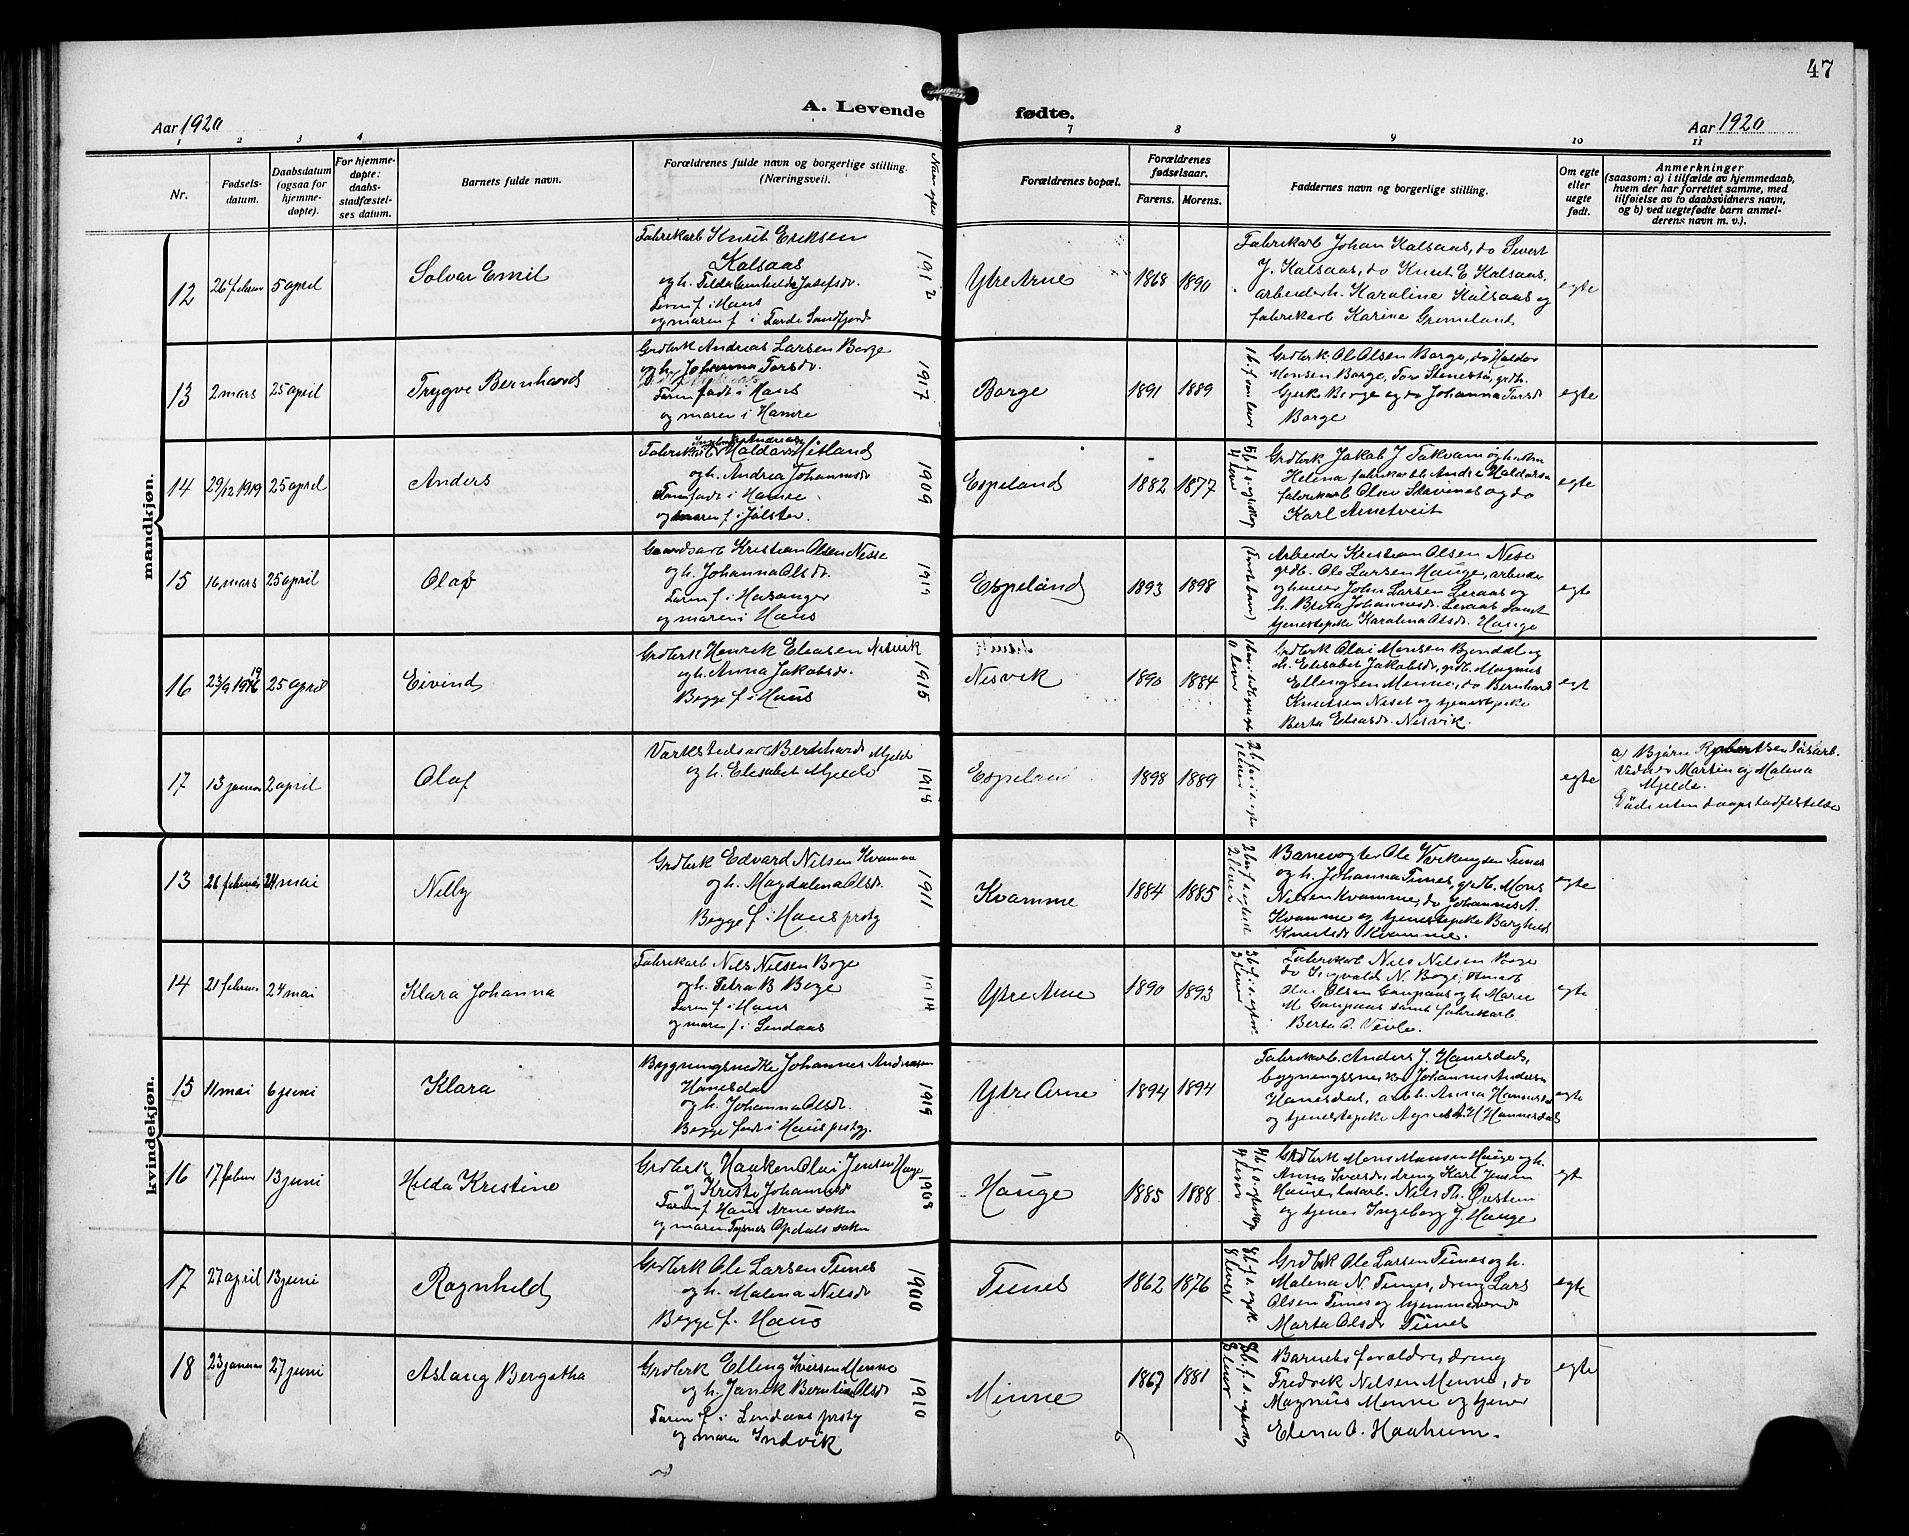 47
A. Levende fødte.
Aar 1920
Aar 1920
1 2 3 4 7 8 9 10 11
Nr.
Fødsels-
datum.
Daabsdatum
(ogsaa for
hjemme-
døpte).
For hjemme-
døpte:
daabs-
stadfæstel-
ses datum.
Barnets fulde navn.
Forældrenes fulde navn og borgerlige stilling.
(Næringsvei).
Forældrenes bopæl.
Forældrenes
fødselsaar.
Farens. Morens.
Faddernes navn og borgerlige stilling.
Om egte
eller
uegte
født.
Anmerkninger
(saasom: a) i tilfælde av hjemmedaab,
hvem der har forrettet samme, med
tilføielse av to daabsvidners navn,
og b) ved uegtefødte barn anmel-
derens navn m. v.).
mandkjøn.
12 26 februar 5 april Solvar Emil
Fabrikarb Knut Eriksen
Kalsaas
Faren f i Haus
og moren f i Førde Søndfjord
1912
Ytre Arne 1868 1890
Fabrikarb Johan Kalsaas, do Sivert
J. Kalsaas, do Knut E Kalsaas,
arbeiderh. Karoline Kalsaas og
fabrikarb Karine Grimeland
egte
13 2 mars 25 april Trygve Bernhard
Grdbrk Andreas Larsen Borge
og h. Johanna Torsdr.
Faren født i Haus
og moren i Hamre
1917
Borge 1891 1889
Grdbrk. Ole Olsen Borge, do Haldor
Monsen Borge, Tors Stenestø, grdb.
Gjerke Borge og do Johanna Torsdr
Borge
egte
14 29/12 1919 25 april Anders
Fabrikarb Haldor Hitland
og h. Andrea Johannesdr
Faren født i Hamre
og moren f i Jølster.
1909
Espeland 1882 1877
4 lever
Grdbrk Jakob J Takvam og hustru
Helena fabrikarb Andre Haldorsen
fabrikarb Olav Stavenes og do
Karl Arnetveit
egte
15 16 mars 25 april Olaf
Gaardsarb Kristian Olsen Nesse
og h. Johanna Olsdr.
Faren f i Hosanger
og moren i Haus
1919
Espeland 1893 1898
(Første barn)
Arbeider Kristian Olsen Nese
grdb. Ole Larsen Hauge, arbeider
og huseier John Larsen Leraas og
h. Brita Johannesdr. Leraas samt
tjenestepike Karolina Olsdr. Hauge
egte
16 23/9 1919 25 april Eivind
Grdbrk Henrik Eliasen Nesvik
og h. Anna Jakobsdr.
Begge f i Haus
1915
Nesvik 1890 1884
Grdbrk Olai Monsen Bjondal og
h. Elisabet Jakobsdr, grdb. Magnus
Ellingsen Menne, do Bernhard
Knutsen Neset og tjenestepike
Berta Eliasdr. Nesvik.
egt
17 13 januar 2 april Olaf
Verkstedsarb Bernhard Mjelde
og h. Elisabet Mjelde
1918
Espeland 1898 1889
1 lever
egte
a) Bjørn
Vidner Martin og Malena
Mjelde.
Døde uten daapstadfestelse
kvindekjøn.
13 28 februar 24 mai Nelly
Grdbrk Edvard Nilsen Kvamme
og h. Magdalena Olsdr.
Begge f i Haus prstg
1911
Kvamme 1884 1885
Banevogter Ole Tunes
og h. Johanna Tunes, grdb. Mons
Nilsen Kvamme, do Johannes A.
Kvamme og tjenestepike Borghild
Knutsdr Kvamme.
egte
14 21 februar 24 mai Klara Johanna
Fabrikarb Nils Nilsen Boge
og h. Petra B Boge
Faren f i Haus
og moren f i Lindaas
1914
Ytre Arne 1890 1893
3 lever
Fabrikarb Nils Nilsen Boge
do Sigvald N. Boge,
Olai Olsen Gaupaas og h Marie
M Gaupaas samt fabrikarb.
Berta O. Vevle.
egte
15 11 mai 6 juni Klara
Bygningssnedker Johannes Andreasen
Hanesdal
og h. Johanna Olsdr.
Begge født i Haus prstg.
1919
Ytre Arne 1894 1894
Fabrikarb. Anders J. Hanesdal,
bygningssnedker Johannes Anders
Hanesdal, arbh. Anna Hannesdal
og tjenestepike Agnes A. H Hannesdal
egte
16 17 februar 13 juni Hilda Kristine
Grdbrk Haaken Olai Jensen Hauge
og Kristi Johannesdr
Faren f Haus Arne sokn
og moren Tysnes Opdals sokn
1908
Hauge 1885 1888
4 lever
Grdbrk Mons Monsen Hauge og h.
Anna Ivarsdr, dreng Karl Jensen
Hauge, løsarb. Nils Th. Øvstem
og tjener Ingeborg J. Hauge
egt
17 27 april 13 juni Ragnhild
Grdbrk Ole Larsen Tunes
og h. Malena Nilsdr
Begge f. Haus
1900
Tunes 1862 1876
8 lever
Grdbrk Ole Larsen Tunes og h.
Malena N. Tunes, dreng Lars
Olsen Tunes og hjemmeværende
Marta Olsdr Tunes
egte
18 23 januar 27 juni Aslaug Bergitha
Grdbrk Elling Iversen Menne
Faren f i Lindaas prstg
og moren Indvik
1910
Minne 1867 1881
8 lever
Barnets foreldre, dreng
Fredrik Nilsen Menne, do
Magnus Menne og tjener
Elena O. Haaheim.
egte